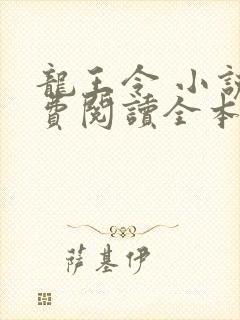 龍王令 小
費閱讀全本
薩基伊